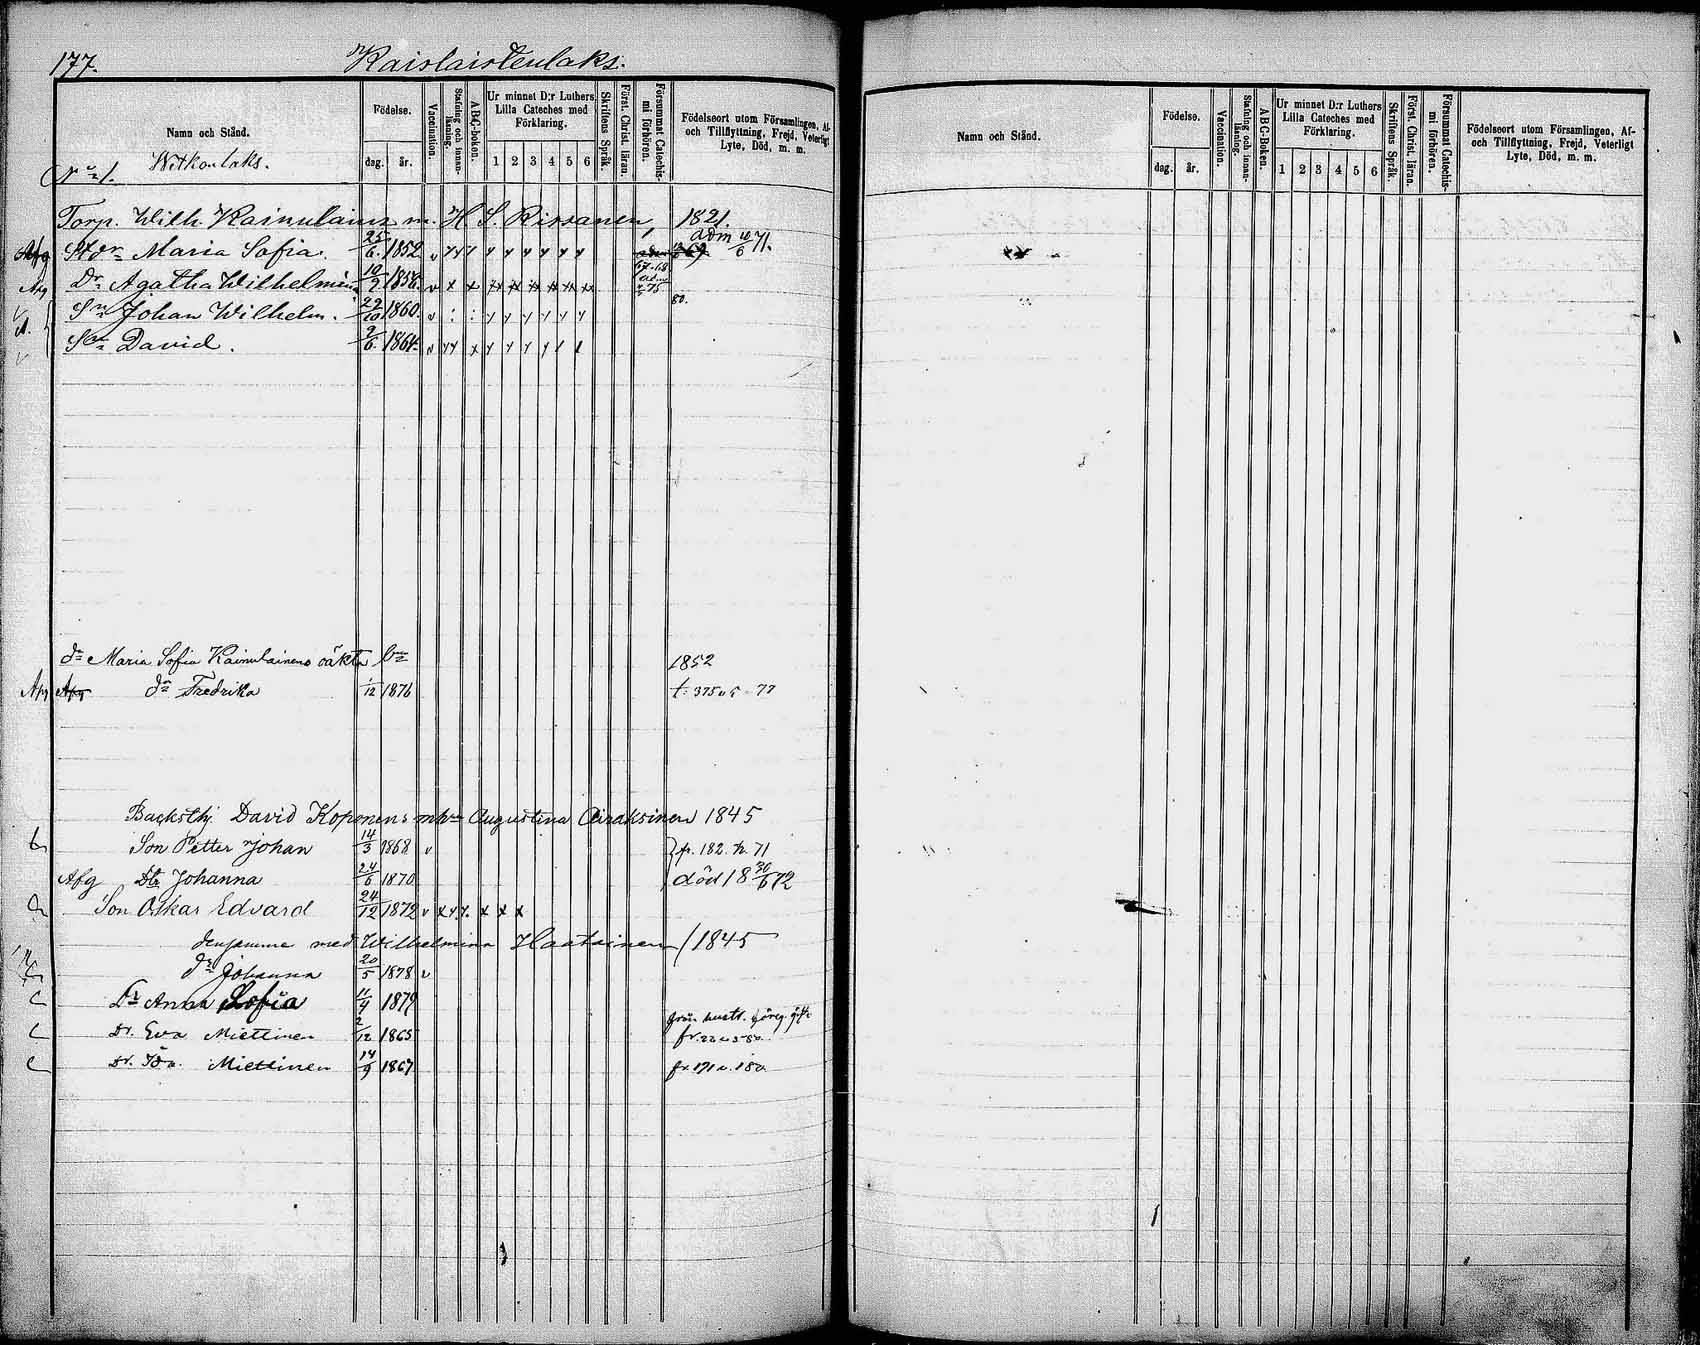 177. Kaislaistenlaks.
Namn och Stånd. Födelse. dag. år. Vaccination. Stafning och innanläsning. ABC-boken. Ur minnet D:r Luthers Lilla Cateches med Förklaring. 1 2 3 4 5 6 Skriftens Språk. Först. Christ. läran. Försummat Catechismi förhören. Födelseort utom Församlingen, Af- och Tillflyttning, Frejd, Veterligt Lyte, Död, m. m.
No 1. Witkonlaks.
Torp. Wilh. Kainulainen m. H. S. Rissanen, 1821.
Afg Maria Sofia. 25/6 1852 v adm 18/6 71.
Afg Dr Agatha Wilhelmina 10/2 1856 v x x 67.68 adm 75
Sn Johan Wilhelm. 29/10 1860. v 80.
Son David. 9/6 1864. v
dr Maria Sofia Kainulainens oäkta bn 1852
Afg Afg dr Fredrika 1/12 1876 t. 375 77
Backsthj David Koponens m hu Augustina Airaksinen 1845
Son Petter Johan 14/3 1868 v fr. 182. 71
Afg Dtr Johanna 24/6 1870 död 18 30/6 72
Son Oskar Edvard 24/12 1872 v x x x x
densamme med Wilhelmina Haatainen / 1845
dr Johanna 20/5 1878 v
Dr Anna Sofia 11/9 1879
Dr. Eva Miettinen 2/12 1865 hustr. föreg. gift
Dr. Ida Miettinen 14/9 1867 fr 171 180
Namn och Stånd. Födelse. dag. år. Vaccination. Stafning och innanläsning. ABC-Boken. Ur minnet D:r Luthers Lilla Cateches med Förklaring. 1 2 3 4 5 6 Skriftens Språk. Först. Christ. läran. Försummat Catechismi förhören. Födelseort utom Församlingen, Af- och Tillflyttning, Frejd, Veterligt Lyte, Död, m. m.